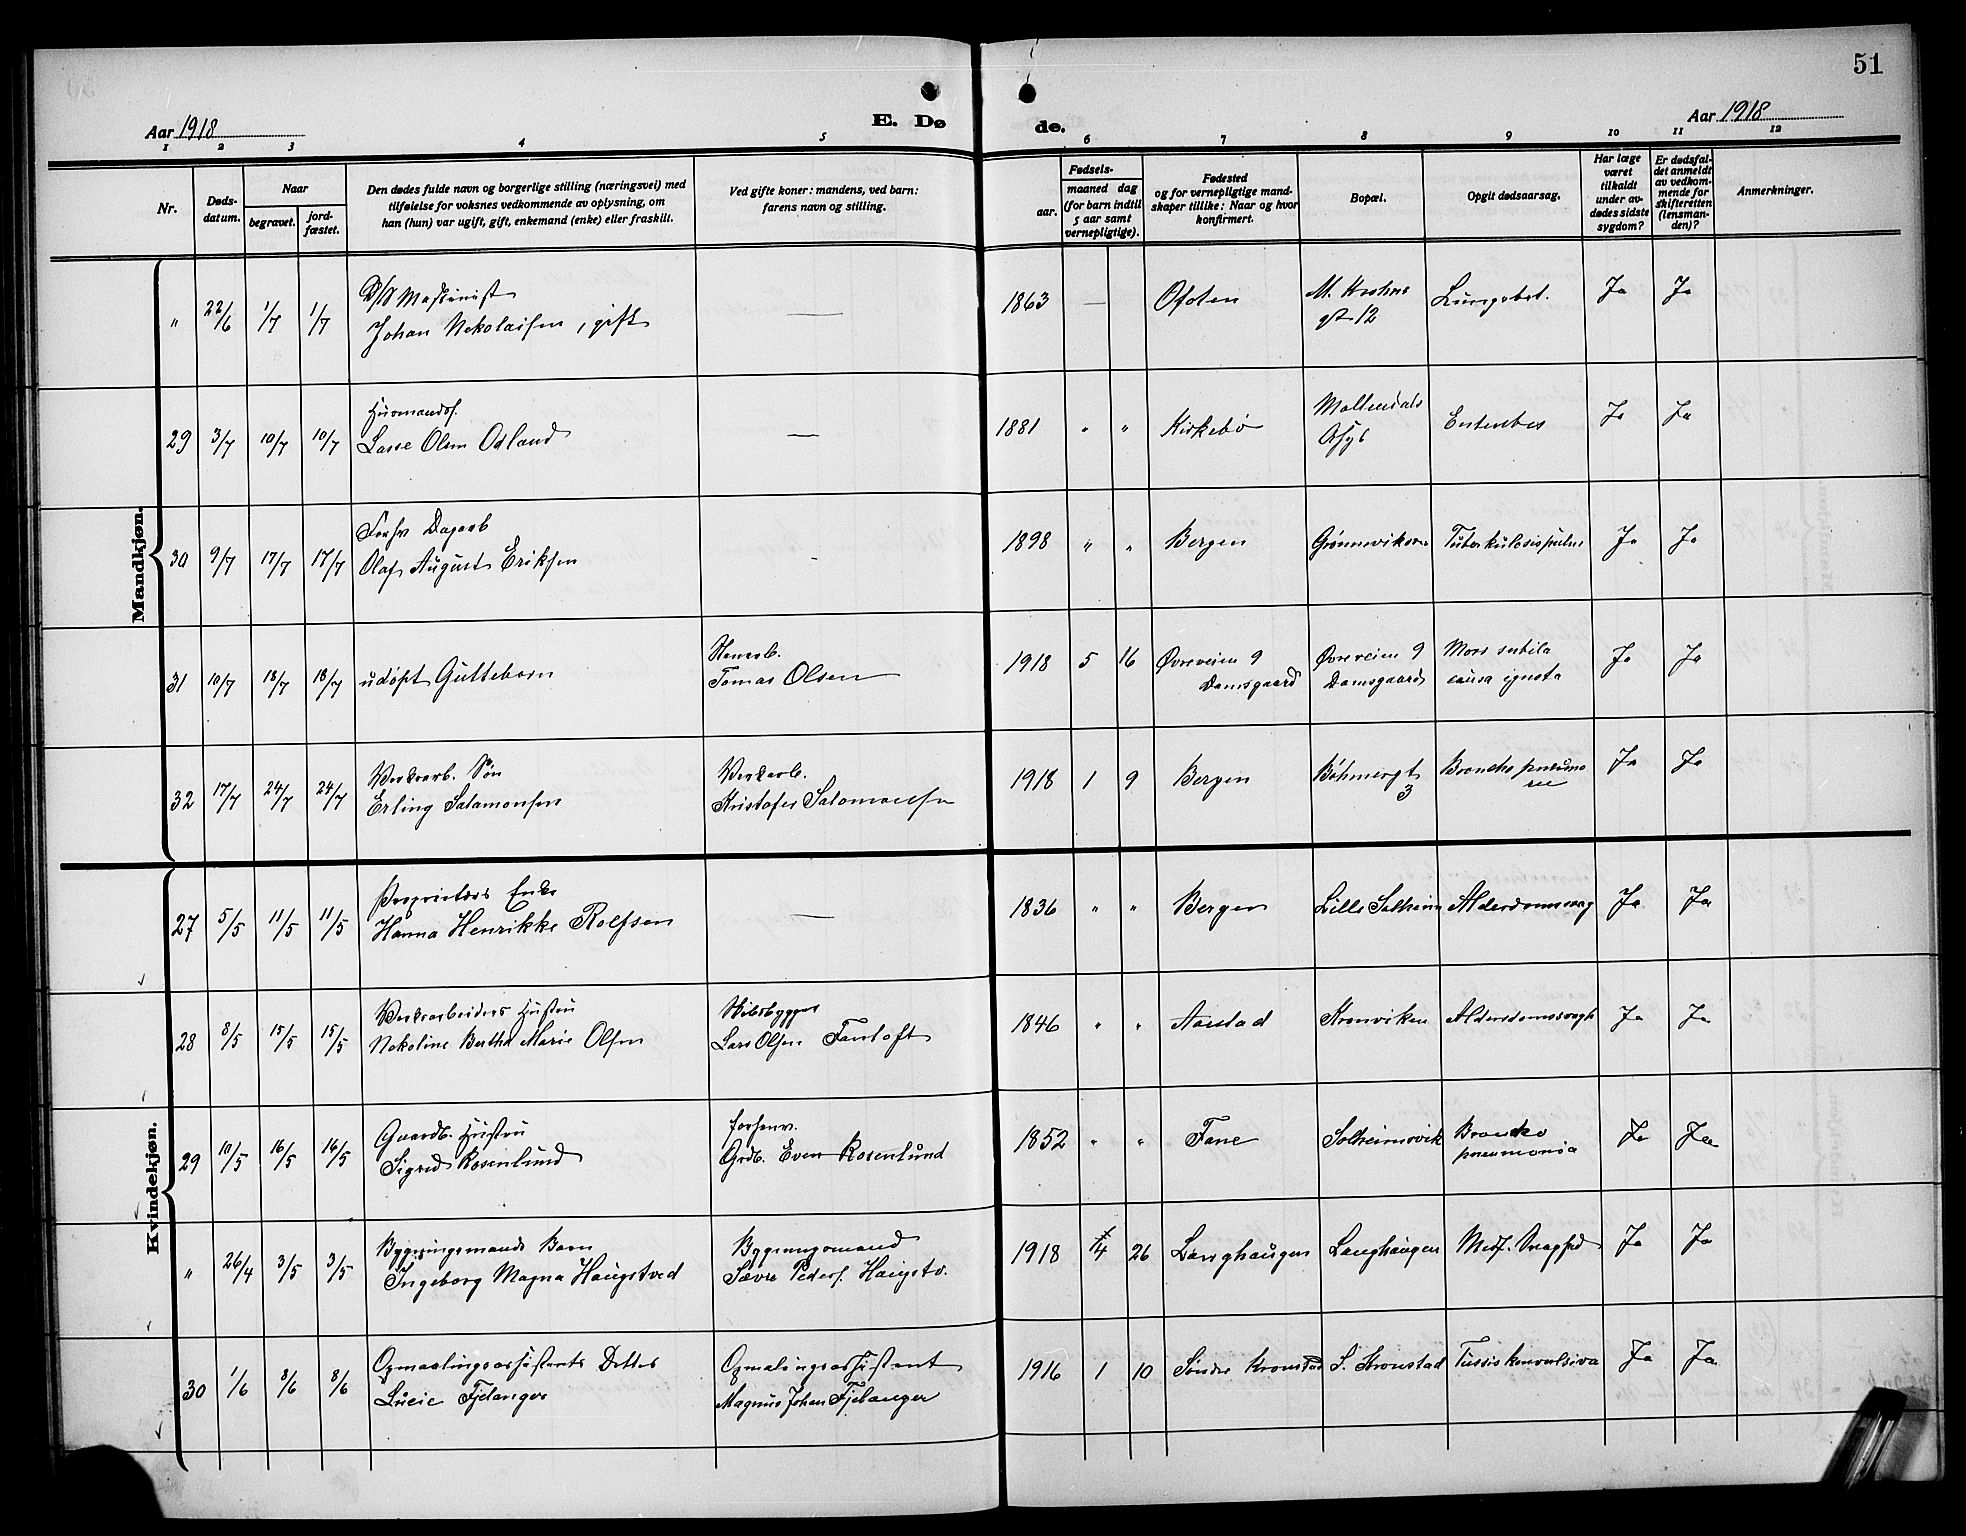 51
Aar 1918
E. Dø
de.
Aar 1918
1 2 3 4 5 6 7 8 9 10 11 12
Nr.
Døds-
datum.
Naar
begravet.
jord-
fæstet.
Den dødes fulde navn og borgerlige stilling (næringsvei) med
tilføielse for voksnes vedkommende av oplysning, om
han (hun) var ugift, gift, enkemand (enke) eller fraskilt.
Ved gifte koner: mandens, ved barn:
farens navn og stilling.
Fødsels-
aar.
maaned dag
(for barn indtil
5 aar samt
vernepligtige).
Fødested
og for vernepligtige mand-
skaper tillike: Naar og hvor
konfirmert.
Bopæl.
Opgit dødsaarsag.
Har læge
været
tilkaldt
under av-
dødes sidste
sygdom?
Er dødsfal-
det anmeldt
av vedkom-
mende for
skifteretten
(lensman-
den)?
Anmerkninger.
Mandkjøn.
D/S Maskinist
" 22/6 1/7 1/7 Johan Nekolaisen, gift — 1863 — Ofoten gt 12 Lungebet. Ja Ja
Husmandsf.
29 3/7 10/7 10/7 Lasse Olsen Odland — 1881 " " Kirkebø Møllendals Asyl Ja Ja
Forhv
30 9/7 17/7 17/7 Olaf August Eriksen - 1898 " " Bergen Grønneviksøren Tuberkulosis pulm Ja Ja
31 10/7 18/7 18/7 udøpt Guttebarn Tomas Olsen 1918 5 16 Øvreveien 9 Damsgaard Øvreveien 9 Damsgaard Mors subita causa ignota Ja Ja
Verksarb. Søn Verksarb.
32 17/7 24/7 24/7 Erling Salamonsen Kristofer Salomonsen 1918 1 9 Bergen Bøhmergt 3 Broncho pneumo nie Ja Ja
Kvindekjøn.
Proprietærs Enke
27 5/5 11/5 11/5 Hanna Henrikke Rolfsen — 1836 " " Bergen Lille Solheim Alderdomssvag Ja Ja
Verksarbeiders Hustru Skibsbygger
28 8/5 15/5 15/5 Nekoline Bertha Marie Olsen Lars Olsen Fantoft 1846 " " Aarstad Kronviken Alderdomssvagh Ja Ja
Gaardb. Hustru forhenv.
29 10/5 16/5 16/5 Sigred Rosenlund Grdb. Even Rosenlund 1852 " " Fane Solheimsvik Broncho pneumonia Ja Ja
Bygningsmands Barn Bygningsmand
" 26/4 3/5 3/5 Ingeborg Magna Haugstved Sævre Peders. Haugstv. 1918 4 26 Langhaugen Langhaugen Medf. Svaghed Ja Ja
Opmaalingsassistents Datter Opmalingsassistent
30 1/6 8/6 8/6 Lucie Fjelanger Magnus Johan Fjelanger 1916 1 10 Søndre Kronstad S. Kronstad Tussis konvulsiva Ja Ja